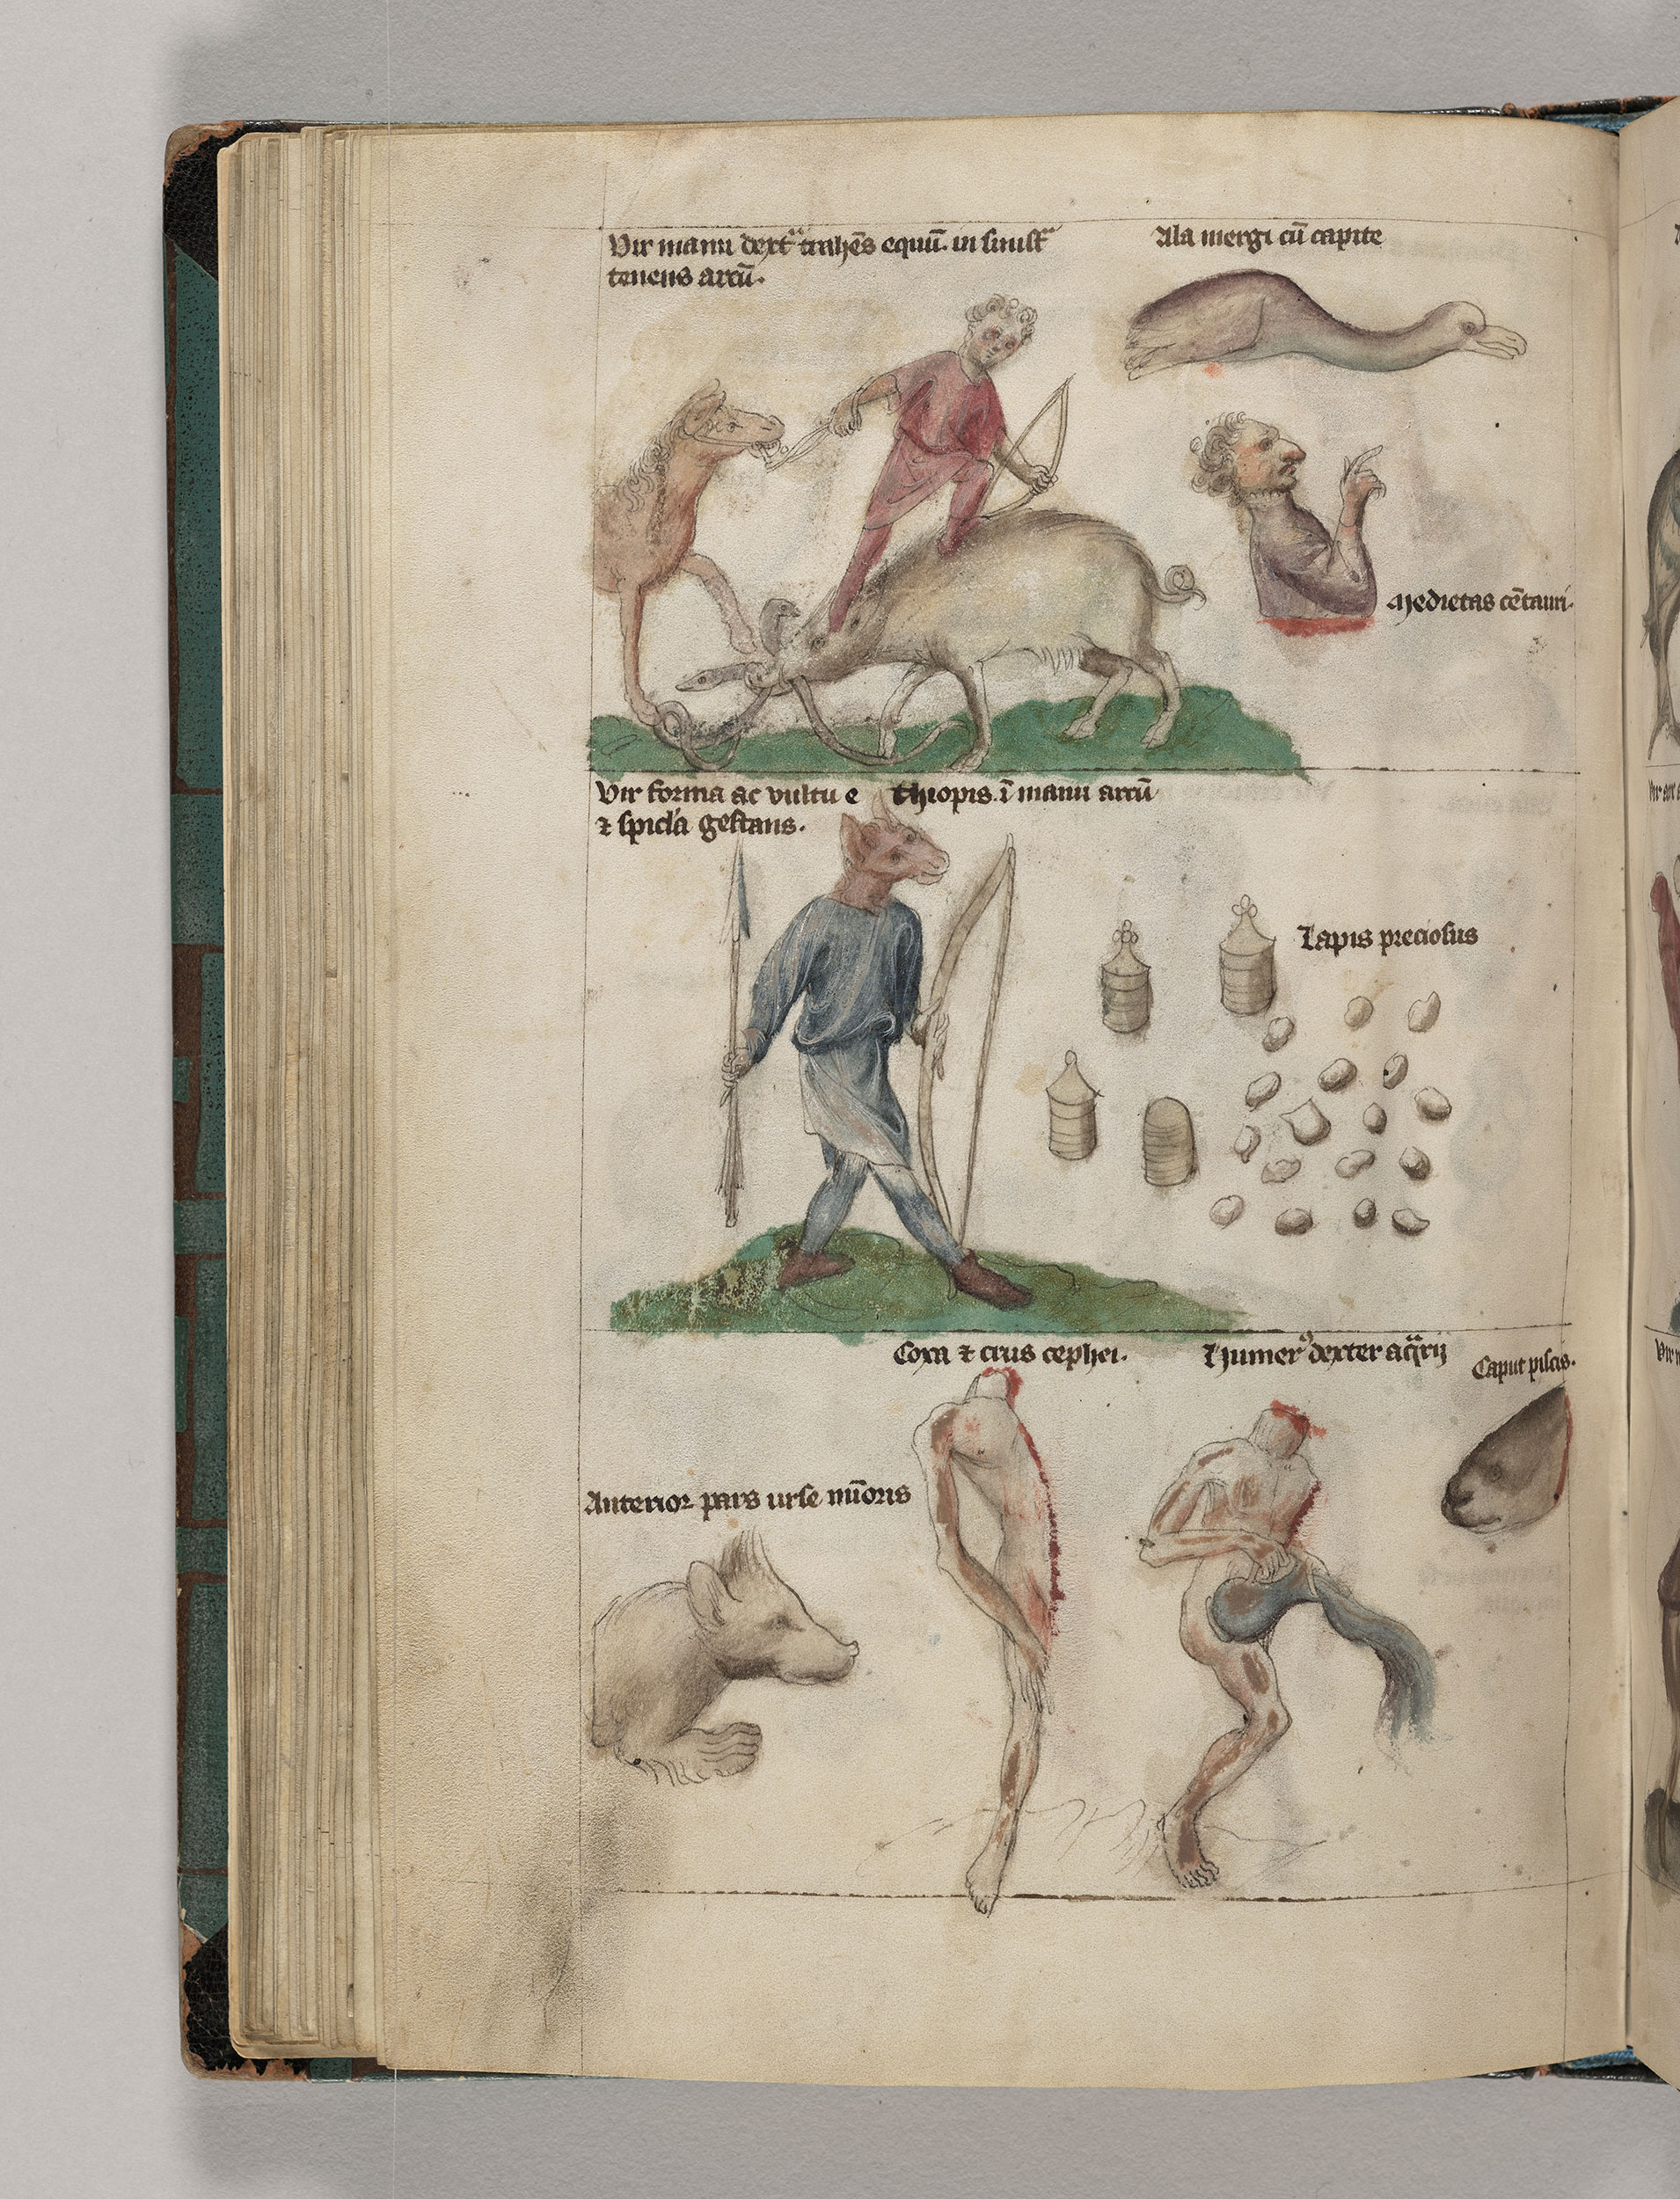 Vir manu dext͛ª trahēs equū. in siniſtª
tenens arcū.
Ala mergi cū capite
Medietas cētauri.
Vir forma ac vultu e thiopis. ī manu arcū
⁊ spicla geſtans.
Lapis precioſus
Coxa ⁊ crus cephei.
Humerꝰ dexter aqᷓrij
Caput piſcis.
Anterior pars urſe mīoris